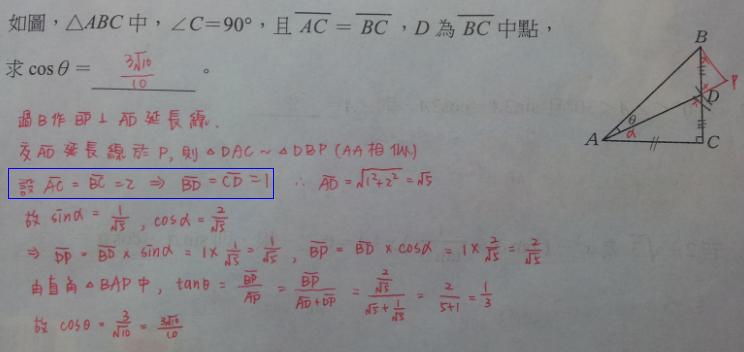 如圖，△ABC 中，∠C=90°，且 AC̅ = BC̅ ，D 為 BC̅ 中點，
求 cos θ = 3√10/10 。
過B作 BP̅ ⊥ AD̅ 延長線，
交AD̅ 延長線於 P, 則 △DAC ~ △DBP (AA相似)
設 AC̅ = BC̅ = 2 ⇒ BD̅ = CD̅ = 1 ∴ AD̅ = √(1²+2²) = √5
故 sinα = 1/√5 , cosα = 2/√5
⇒ DP̅ = BD̅ × sinα = 1 × 1/√5 = 1/√5 , BP̅ = BD̅ × cosα = 1 × 2/√5 = 2/√5
由直角 △BAP 中, tanθ = BP̅/AP̅ = BP̅/(AD̅+DP̅) = (2/√5)/(√5 + 1/√5) = 2/(5+1) = 1/3
故 cosθ = 3/√10 = 3√10/10
B
P
D
θ
α
A
C